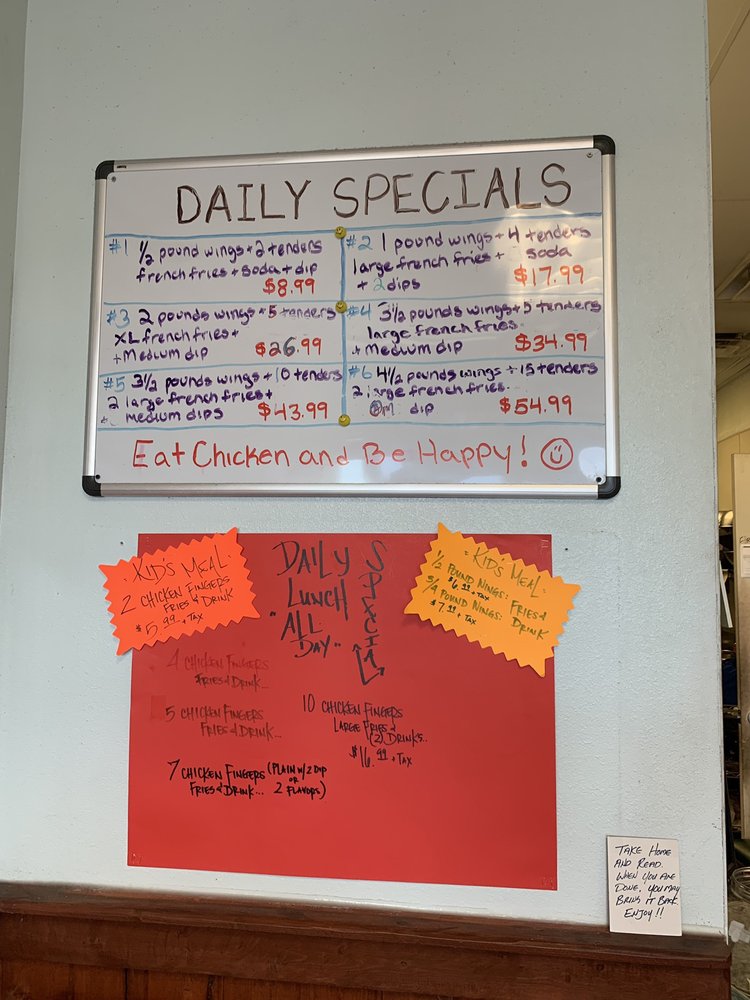 DAILY SPECIALS
#1 1/2 pound wings + 2 tenders
french fries + soda + dip
$8.99
#2 1 pound wings + 4 tenders
large french fries + soda
+ 2 dips $17.99
#3 2 pounds wings + 5 tenders
XL french fries +
+ Medium dip $26.99
#4 3 1/2 pounds wings + 5 tenders
large french fries
+ Medium dip $34.99
#5 3 1/2 pounds wings + 10 tenders
2 large french fries +
medium dips $43.99
#6 4 1/2 pounds wings + 15 tenders
2 large french fries
dip $54.99
Eat Chicken and Be Happy!
KID'S MEAL
2 CHICKEN FINGERS
FRIES & DRINK
$5.99 + TAX
DAILY
LUNCH
"ALL
DAY"
KID'S MEAL
1/2 POUND WINGS: FRIES &
$6.99 + TAX
3/4 POUND WINGS: DRINK
$7.99 + TAX
4 CHICKEN FINGERS
FRIES & DRINK...
5 CHICKEN FINGERS
FRIES & DRINK...
7 CHICKEN FINGERS (PLAIN W/2 DIP
OR
FRIES & DRINK... 2 FLAVORS)
10 CHICKEN FINGERS
LARGE FRIES &
(2) DRINKS..
$16.99 + TAX
TAKE HOME
AND READ.
WHEN YOU ARE
DONE, YOU MAY
BRING IT BACK.
ENJOY!!